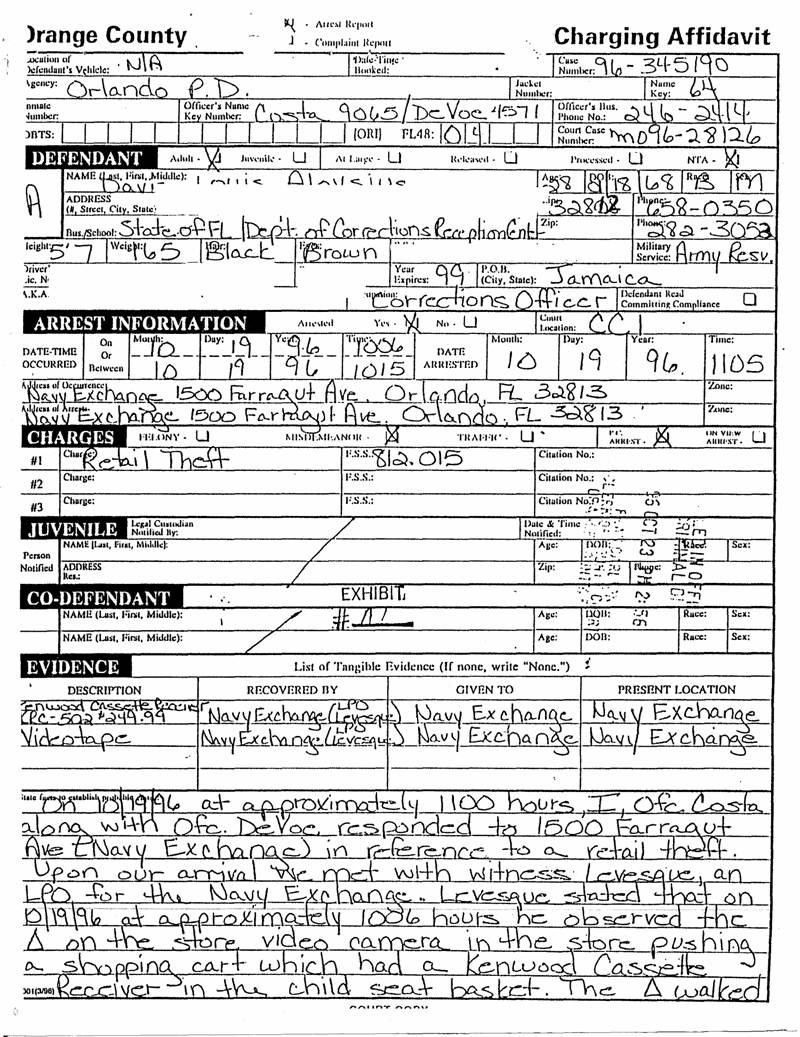 Orange County
Arrest Report
Complaint Report
Charging Affidavit
Location of Defendant's Vehicle: N/A
Date-Time Booked:
Case Number: 96-345190
Agency: Orlando P.D.
Jacket Number:
Name Key: 64
Inmate Number:
Officer's Name Key Number: Costa 9065/DeVoe 4571
Officer's Bus. Phone No.: 246-2414
OBTS:
(ORI) FL48: 04
Court Case Number: MO96-28126
DEFENDANT Adult - X Juvenile - At Large - Released - Processed - NTA - X
NAME (Last, First, Middle):
Age: 28 18 68 Race B M
A ADDRESS (#, Street, City, State)
Zip: Phone: 658-0350
Bus./School: State of FL Dept. of Corrections Reception Cent
Zip: Phone: 282-3052
Height: 5'7 Weight: 165 Hair: Black Eyes: Brown
Military Service: Army Resv.
Driver' Lic. N
Year Expires: 99 P.O.B. (City, State): Jamaica
A.K.A.
Corrections Officer
Defendant Read Committing Compliance
ARREST INFORMATION Arrested Yes - X No - Court Location: CC1
DATE-TIME OCCURRED On Or Between
Month: 10 Day: 19 Year: 96 Time: 1006
10 19 96 1015
DATE ARRESTED Month: 10 Day: 19 Year: 96. Time: 1105
Address of Occurrence Navy Exchange 1500 Farragut Ave. Orlando, FL 32813 Zone:
Address of Arrest: Navy Exchange 1500 Farragut Ave. Orlando, FL 32813 Zone:
CHARGES FELONY - MISDEMEANOR - X TRAFFIC - P.C. ARREST - X ON VIEW ARREST -
#1 Charge: Retail Theft F.S.S.: 812.015 Citation No.:
#2 Charge: F.S.S.: Citation No.:
#3 Charge: F.S.S.: Citation No.:
JUVENILE Legal Custodian Notified By:
Date & Time Notified:
Person Notified NAME (Last, First, Middle): Age: DOB: Race: Sex:
ADDRESS Res.: Zip: Phone:
OCT 23
CO-DEFENDANT EXHIBIT
NAME (Last, First, Middle): Age: DOB: Race: Sex:
NAME (Last, First, Middle): Age: DOB: Race: Sex:
EVIDENCE List of Tangible Evidence (If none, write "None.")
DESCRIPTION RECOVERED BY GIVEN TO PRESENT LOCATION
Kenwood Cassette Receiver KRC-502 $249.99 Navy Exchange (LPO Levesque) Navy Exchange Navy Exchange
Videotape Navy Exchange (LPO Levesque) Navy Exchange Navy Exchange
On 10/19/96 at approximately 1100 hours, I, Ofc. Costa
along with Ofc. DeVoe responded to 1500 Farragut
Ave (Navy Exchange) in reference to a retail theft.
Upon our arrival we met with witness Levesque, an
LPO for the Navy Exchange. Levesque stated that on
10/19/96 at approximately 1006 hours he observed the
Δ on the store video camera in the store pushing
a shopping cart which had a Kenwood Cassette
Receiver in the child seat basket. The Δ walked
COURT COPY